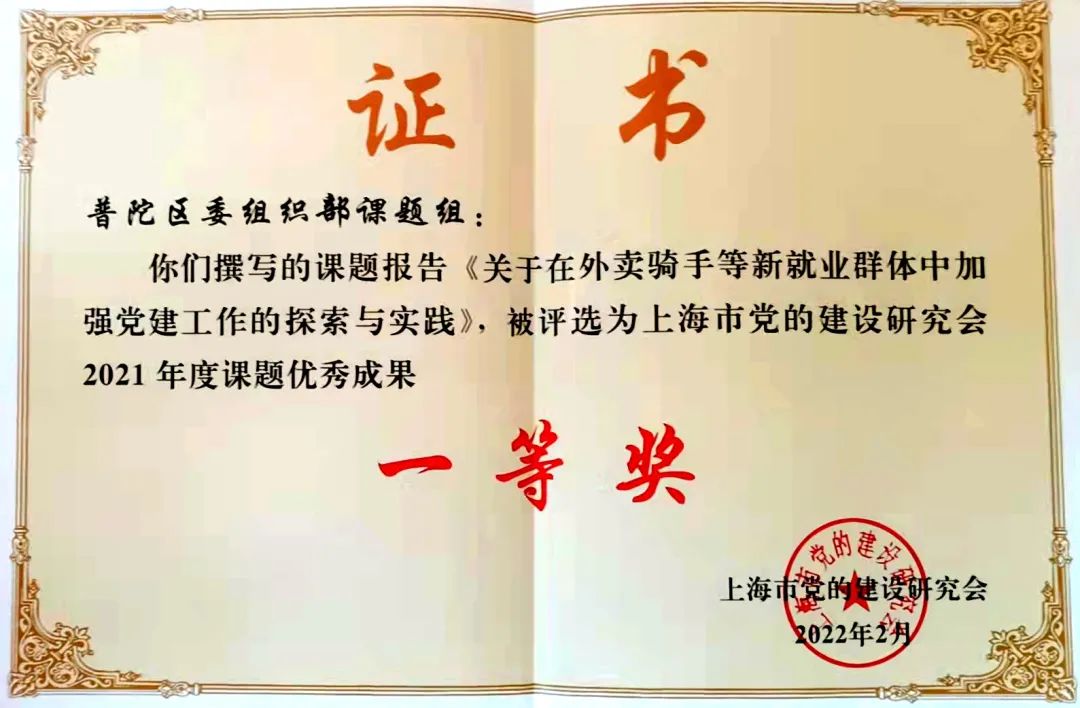 证书
普陀区委组织部课题组：
你们撰写的课题报告《关于在外卖骑手等新就业群体中加
强党建工作的探索与实践》，被评选为上海市党的建设研究会
2021年度课题优秀成果
一等奖
上海市党的建设研究会
上海市党的建设研究会
2022年2月